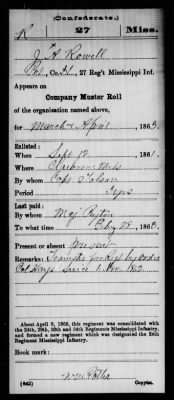 (Confederate.)
R 27 Miss.
J. H. Rowell
Pvt., Co. H, 27 Reg't Mississippi Inf.
Appears on
Company Muster Roll
of the organization named above,
for March & April, 1863.
Enlisted:
When Sept 10, 1861.
Where
By whom Capt.
Period 3 yrs
Last paid:
By whom Maj.
To what time Feby 28, 1863.
Present or absent present
Remarks:
Col Hays Since 1 Nov. 1862
About April 9, 1865, this regiment was consolidated with
the 24th, 29th, 30th and 34th Regiments Mississippi Infantry,
and formed a new regiment which was designated the 24th
Regiment Mississippi Infantry.
Book mark:
(642) Copyist.